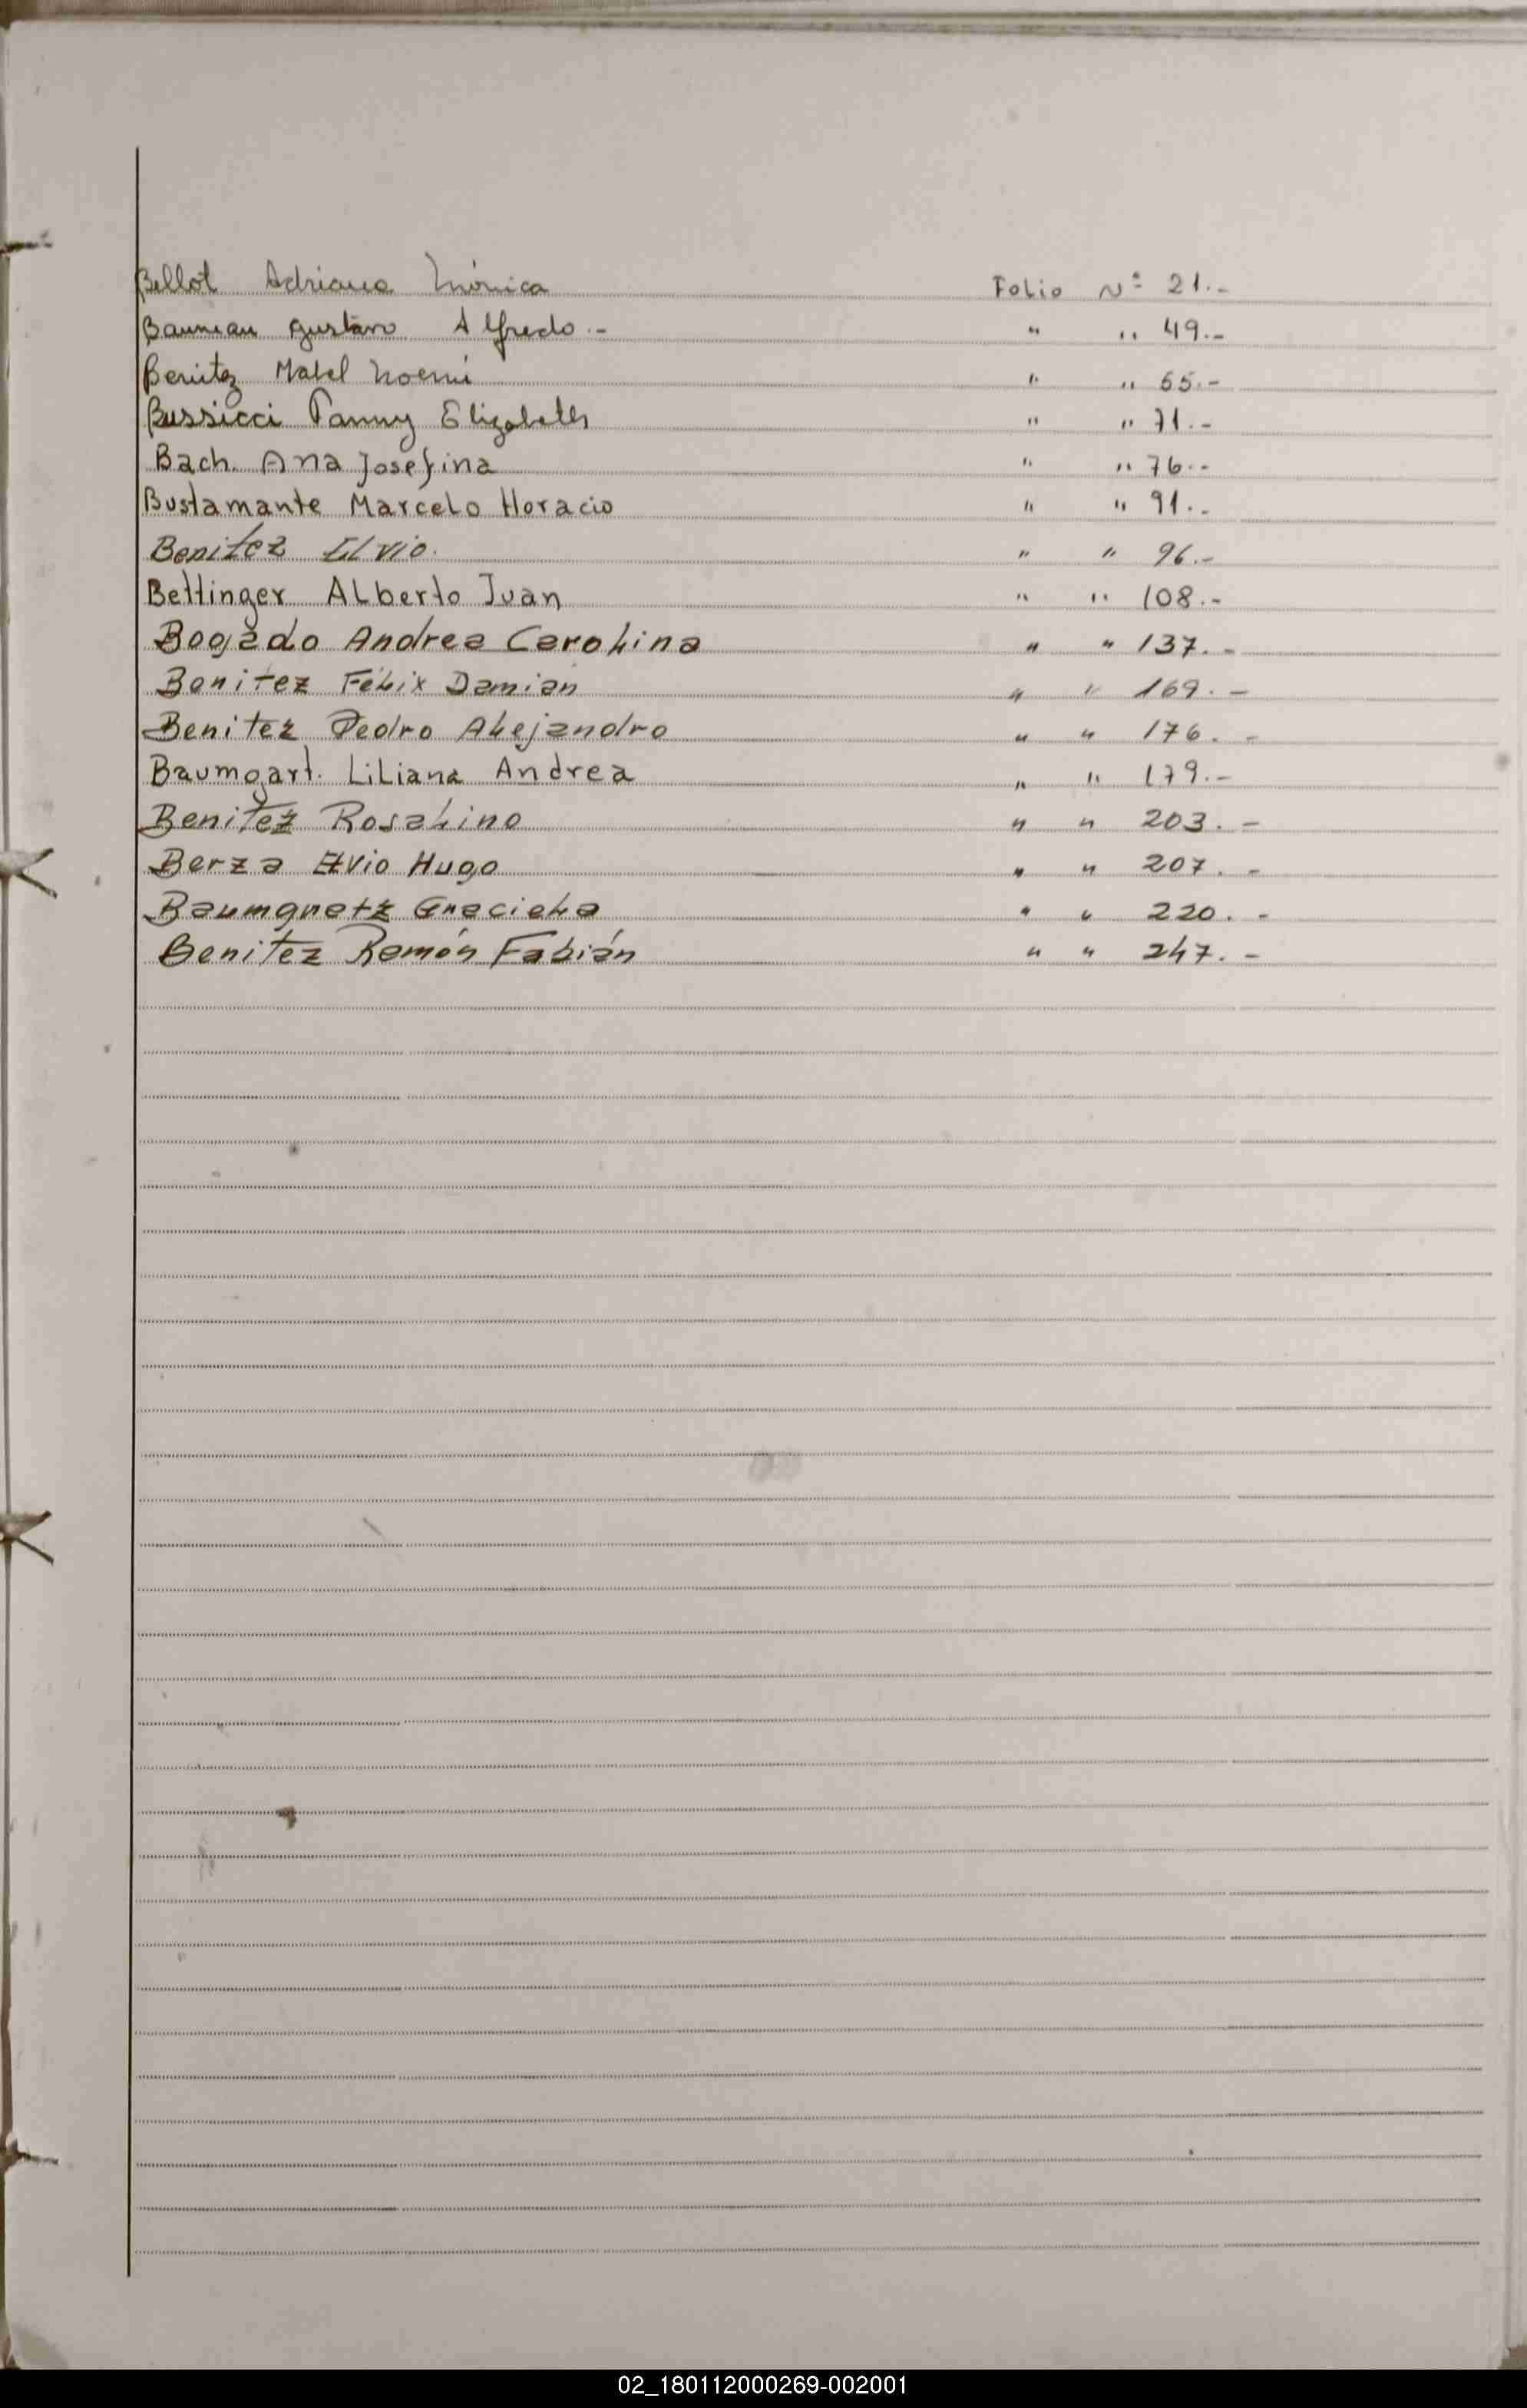 Bellot Adriana Mónica Folio Nº 21.-
Bauman Gustavo Alfredo.- " " 49.-
Benitez Mabel Noemi " " 65.-
Bussicci Fanny Elizabeth " " 71.-
Bach Ana Josefina " " 76.-
Bustamante Marcelo Horacio " " 91.-
Benitez Elvio. " " 96.-
Bettinger Alberto Juan " " 108.-
Bogado Andrea Carolina " " 137.-
Benitez Félix Damian " " 169.-
Benitez Pedro Alejandro " " 176.-
Baumgart. Liliana Andrea " " 179.-
Benitez Rosalino " " 203.-
Berza Elvio Hugo " " 207.-
Graciela " " 220.-
Benitez Ramón Fabián " " 247.-
02_180112000269-002001